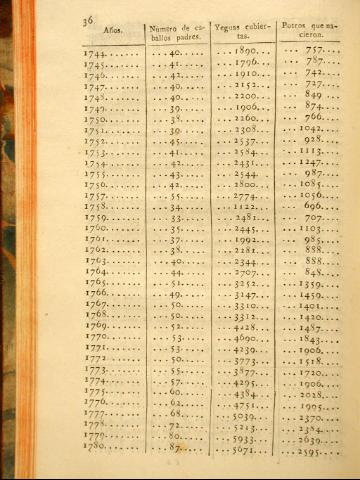 36
Años. Número de ca-ballos padres. Yeguas cubier-tas. Potros que na-cieron.
1744....... ...40..... ...1890.... ... 757....
1745....... ...41..... ...1796.... ... 787....
1746....... ...42..... ...1910.... ... 742....
1747....... ...40..... ...2152.... ... 727....
1748....... ...40..... ...2200.... ... 849....
1749....... ...39..... ...1906.... ... 874....
1750....... ...38..... ...2260.... ... 766....
1751....... ...39..... ...2308.... ...1042....
1752....... ...45..... ...2537.... ... 928....
1753....... ...41..... ...2584.... ...1113....
1754....... ...42..... ...2431.... ...1247....
1755....... ...43..... ...2544.... ... 987....
1756....... ...42..... ...2800.... ...1085....
1757....... ...55..... ...2774.... ...1056....
1758....... ...34..... ...1122.... ... 696....
1759....... ...33..... ...2481.... ... 707....
1760....... ...35..... ...2445.... ...1103....
1761....... ...37..... ...1992.... ... 985....
1762....... ...38..... ...2281.... ... 888....
1763....... ...40..... ...2344.... ... 888....
1764....... ...44..... ...2707.... ... 848....
1765....... ...51..... ...3252.... ...1359....
1766....... ...49..... ...3147.... ...1459....
1767....... ...50..... ...3310.... ...1401....
1768....... ...50..... ...3312.... ...1420....
1769....... ...52..... ...4128.... ...1487....
1770....... ...53..... ...4690.... ...1843....
1771....... ...53..... ...4239.... ...1906....
1772....... ...50..... ...3773.... ...1518....
1773....... ...55..... ...3877.... ...1720....
1774....... ...57..... ...4295.... ...1906....
1775....... ...60..... ...4384.... ...2028....
1776....... ...62..... ...4751.... ...1905....
1777....... ...68..... ...5039.... ...2370....
1778....... ...72..... ...5213.... ...2384....
1779....... ...80..... ...5933.... ...2639....
1780....... ...87..... ...5671.... ...2595....